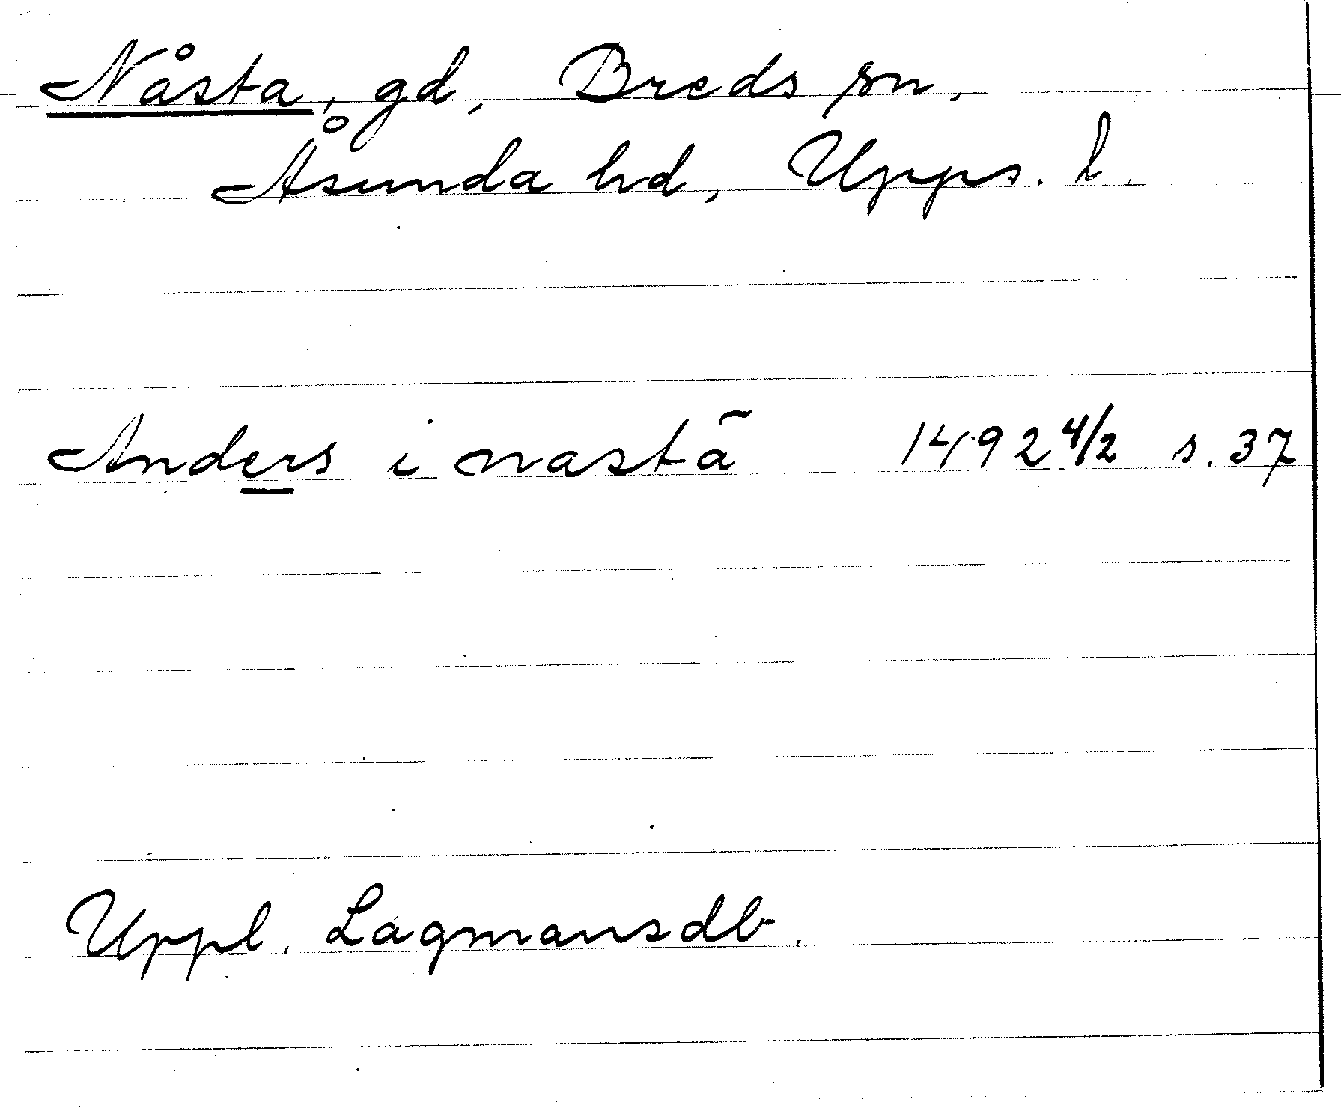 Nåsta, gd, Breds sn,
Åsunda hd, Upps. l.
Anders i nastā 1492 4/2 s. 37
Uppl. Lagmansdb.